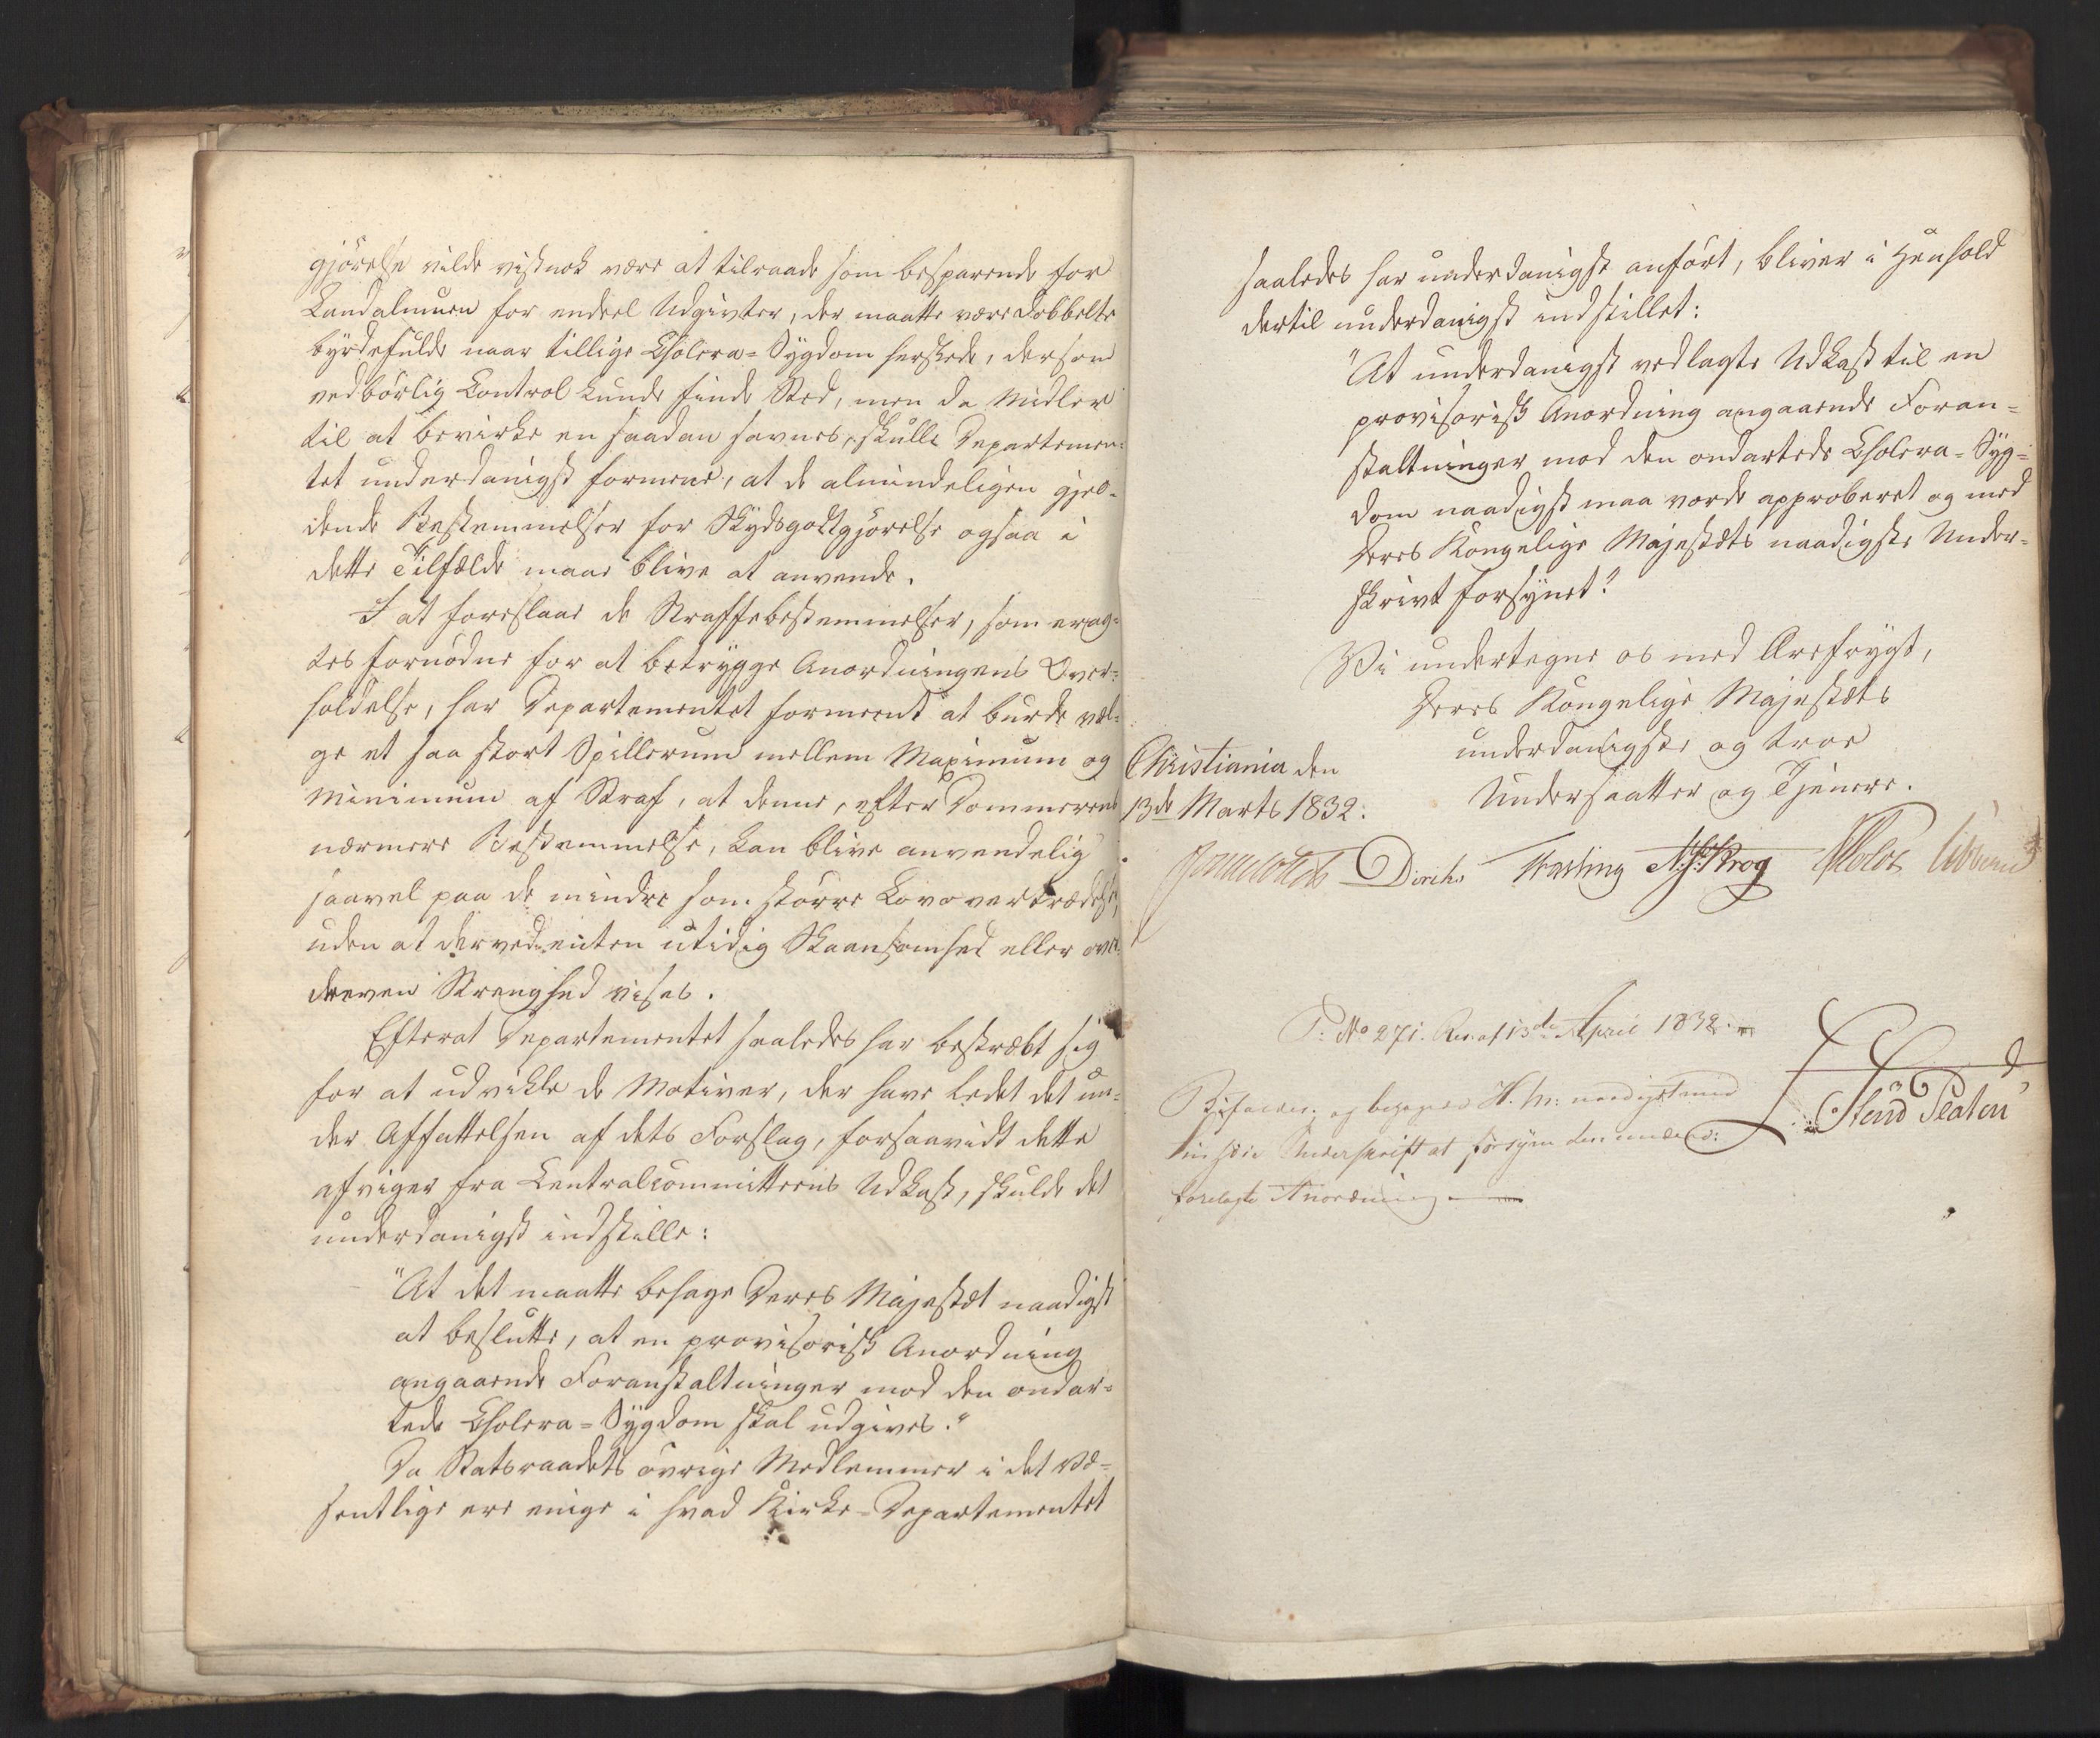 gjörelse vilde vistnok være at tilraade som besparende for
Landalmuen for endeel Udgivter, der maatte være dobbelte
byrdefulde naar tillige Cholera-Sygdom herskede, dersom
vedbörlig Control kunde finde Sted, men da Midler
til at bevirke en saadan savnes, skulle Departemen-
tet underdanigst formene, at de almindeligen gjel-
dende Bestemmelser for Skydsgodtgjörelse ogsaa i
dette Tilfælde maae blive at anvende.
I at foreslaae de Straffebestemmelser, som erag-
tes fornödne for at betrygge Anordningens Over-
holdelse, har Departementet formeent at burde væl-
ge et saa stort Spillerum mellem Maximum og
Minimum af Straf, at denne, efter Dommerens
nærmere Bestemmelse, kan blive anvendelig
saavel paa de mindre som större Lovovertrædelser,
uden at derved enten utidig Skaansomhed eller over-
dreven Strenghed vises.
Efterat Departementet saaledes har bestræbt sig
for at udvikle de Motiver, der have ledet det un-
der Affattelsen af dets Forslag, forsaavidt dette
afviger fra Centralcommitteens Udkast, skulde det
underdanigst indstille:
"At det maatte behage Deres Majestæt naadigst
at beslutte, at en provisorisk Anordning
angaaende Foranstaltninger mod den ondar-
tede Cholera-Sygdom skal udgives."
Da Statsraadets övrige Medlemmer i det Væ-
sentlige ere enige i hvad Kirke-Departementet
saaledes har underdanigst anfört, bliver i Henhold
dertil underdanigst indstillet:
"At underdanigst vedlagte Udkast til en
provisorisk Anordning angaaende Foran-
staltninger mod den ondartede Cholera-Syg-
dom naadigst maa vorde approberet og med
Deres Kongelige Majestæts naadigste Under-
skrivt forsynet."
Vi undertegne os med Ærefrygt,
Deres Kongelige Majestæts
underdanigste og troe
Undersaatter og Tjenere.
Christiania den
13de Marts 1832.
Diriks Vogt Krog
P: No 271. Res. af 13de April 1832.
Bifaldes, og behagede H. M: naadigst med
in höie Underskrift at forsyne den
forelagte Anordning